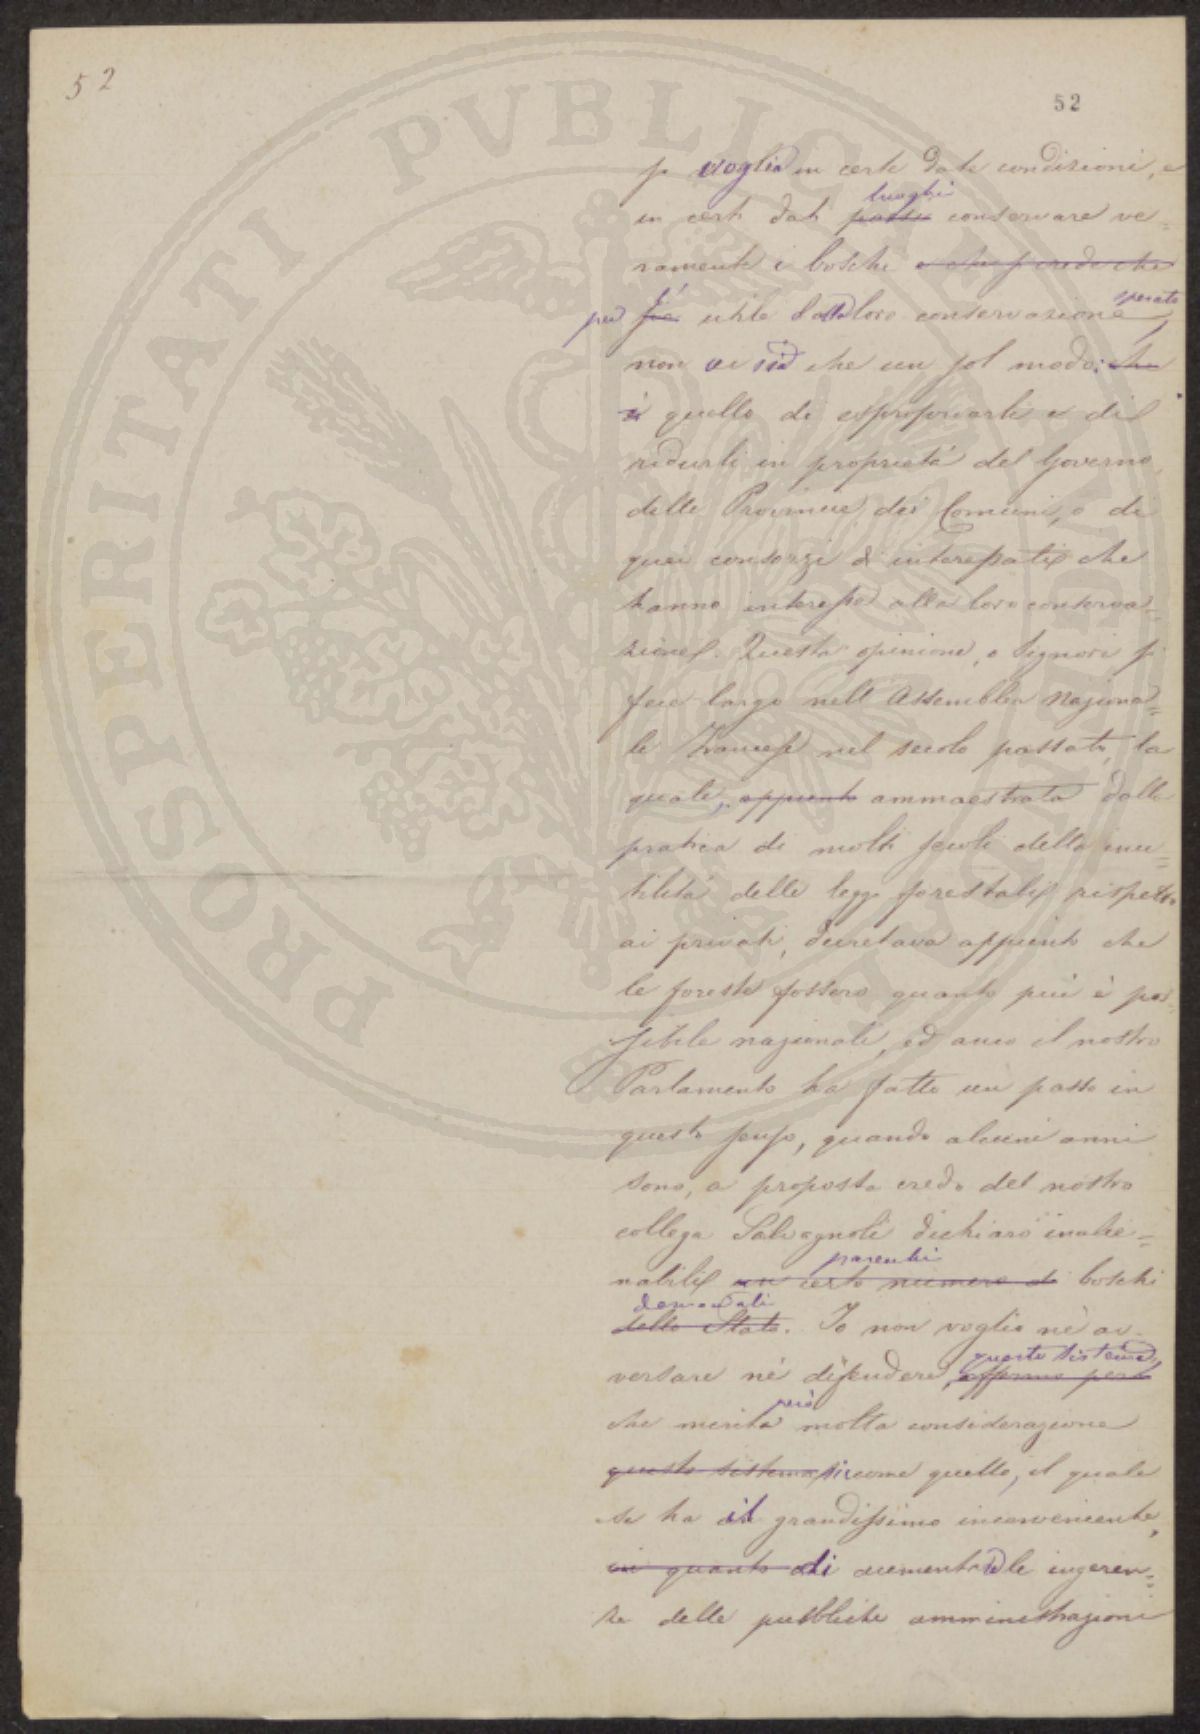 52
52
PROSPERITATI PVBLICAE AVGENDAE
si voglia in certe date condizioni, e
luoghi
in certi dati paesi conservare ve=
ramente i boschi e che si creda che
sperata
per sia utile dalla loro conservazione,
non vi sia che un sol modo: che
è quello di espropriarli e di
ridurli in proprietà del Governo,
delle Provincie, dei Comuni, o di
quei consorzi di interessati che
hanno interesse alla loro conserva=
zione. Questa opinione, o Signori si
fece largo nell'Assemblea Naziona=
le Francese nel secolo passato, la
quale, appunto ammaestrata dalla
pratica di molti secoli della inu=
tilità delle leggi forestali rispetto
ai privati, decretava appunto che
le foreste fossero quanto più è pos=
sibile nazionali, ed anco il nostro
Parlamento ha fatto un passo in
questo senso, quando alcuni anni
sono, a proposta credo del nostro
collega Salvagnoli dichiarò inalie=
parecchi
nabili un certo numero di boschi
demaniali
dello Stato. Io non voglio nè av=
questo sistema,
versare nè difendere, affermo però
però
che merita molta considerazione
questo sistema siccome quello, il quale
se ha il grandissimo inconveniente,
in quanto di aumentare le ingeren=
ze delle pubbliche amministrazioni